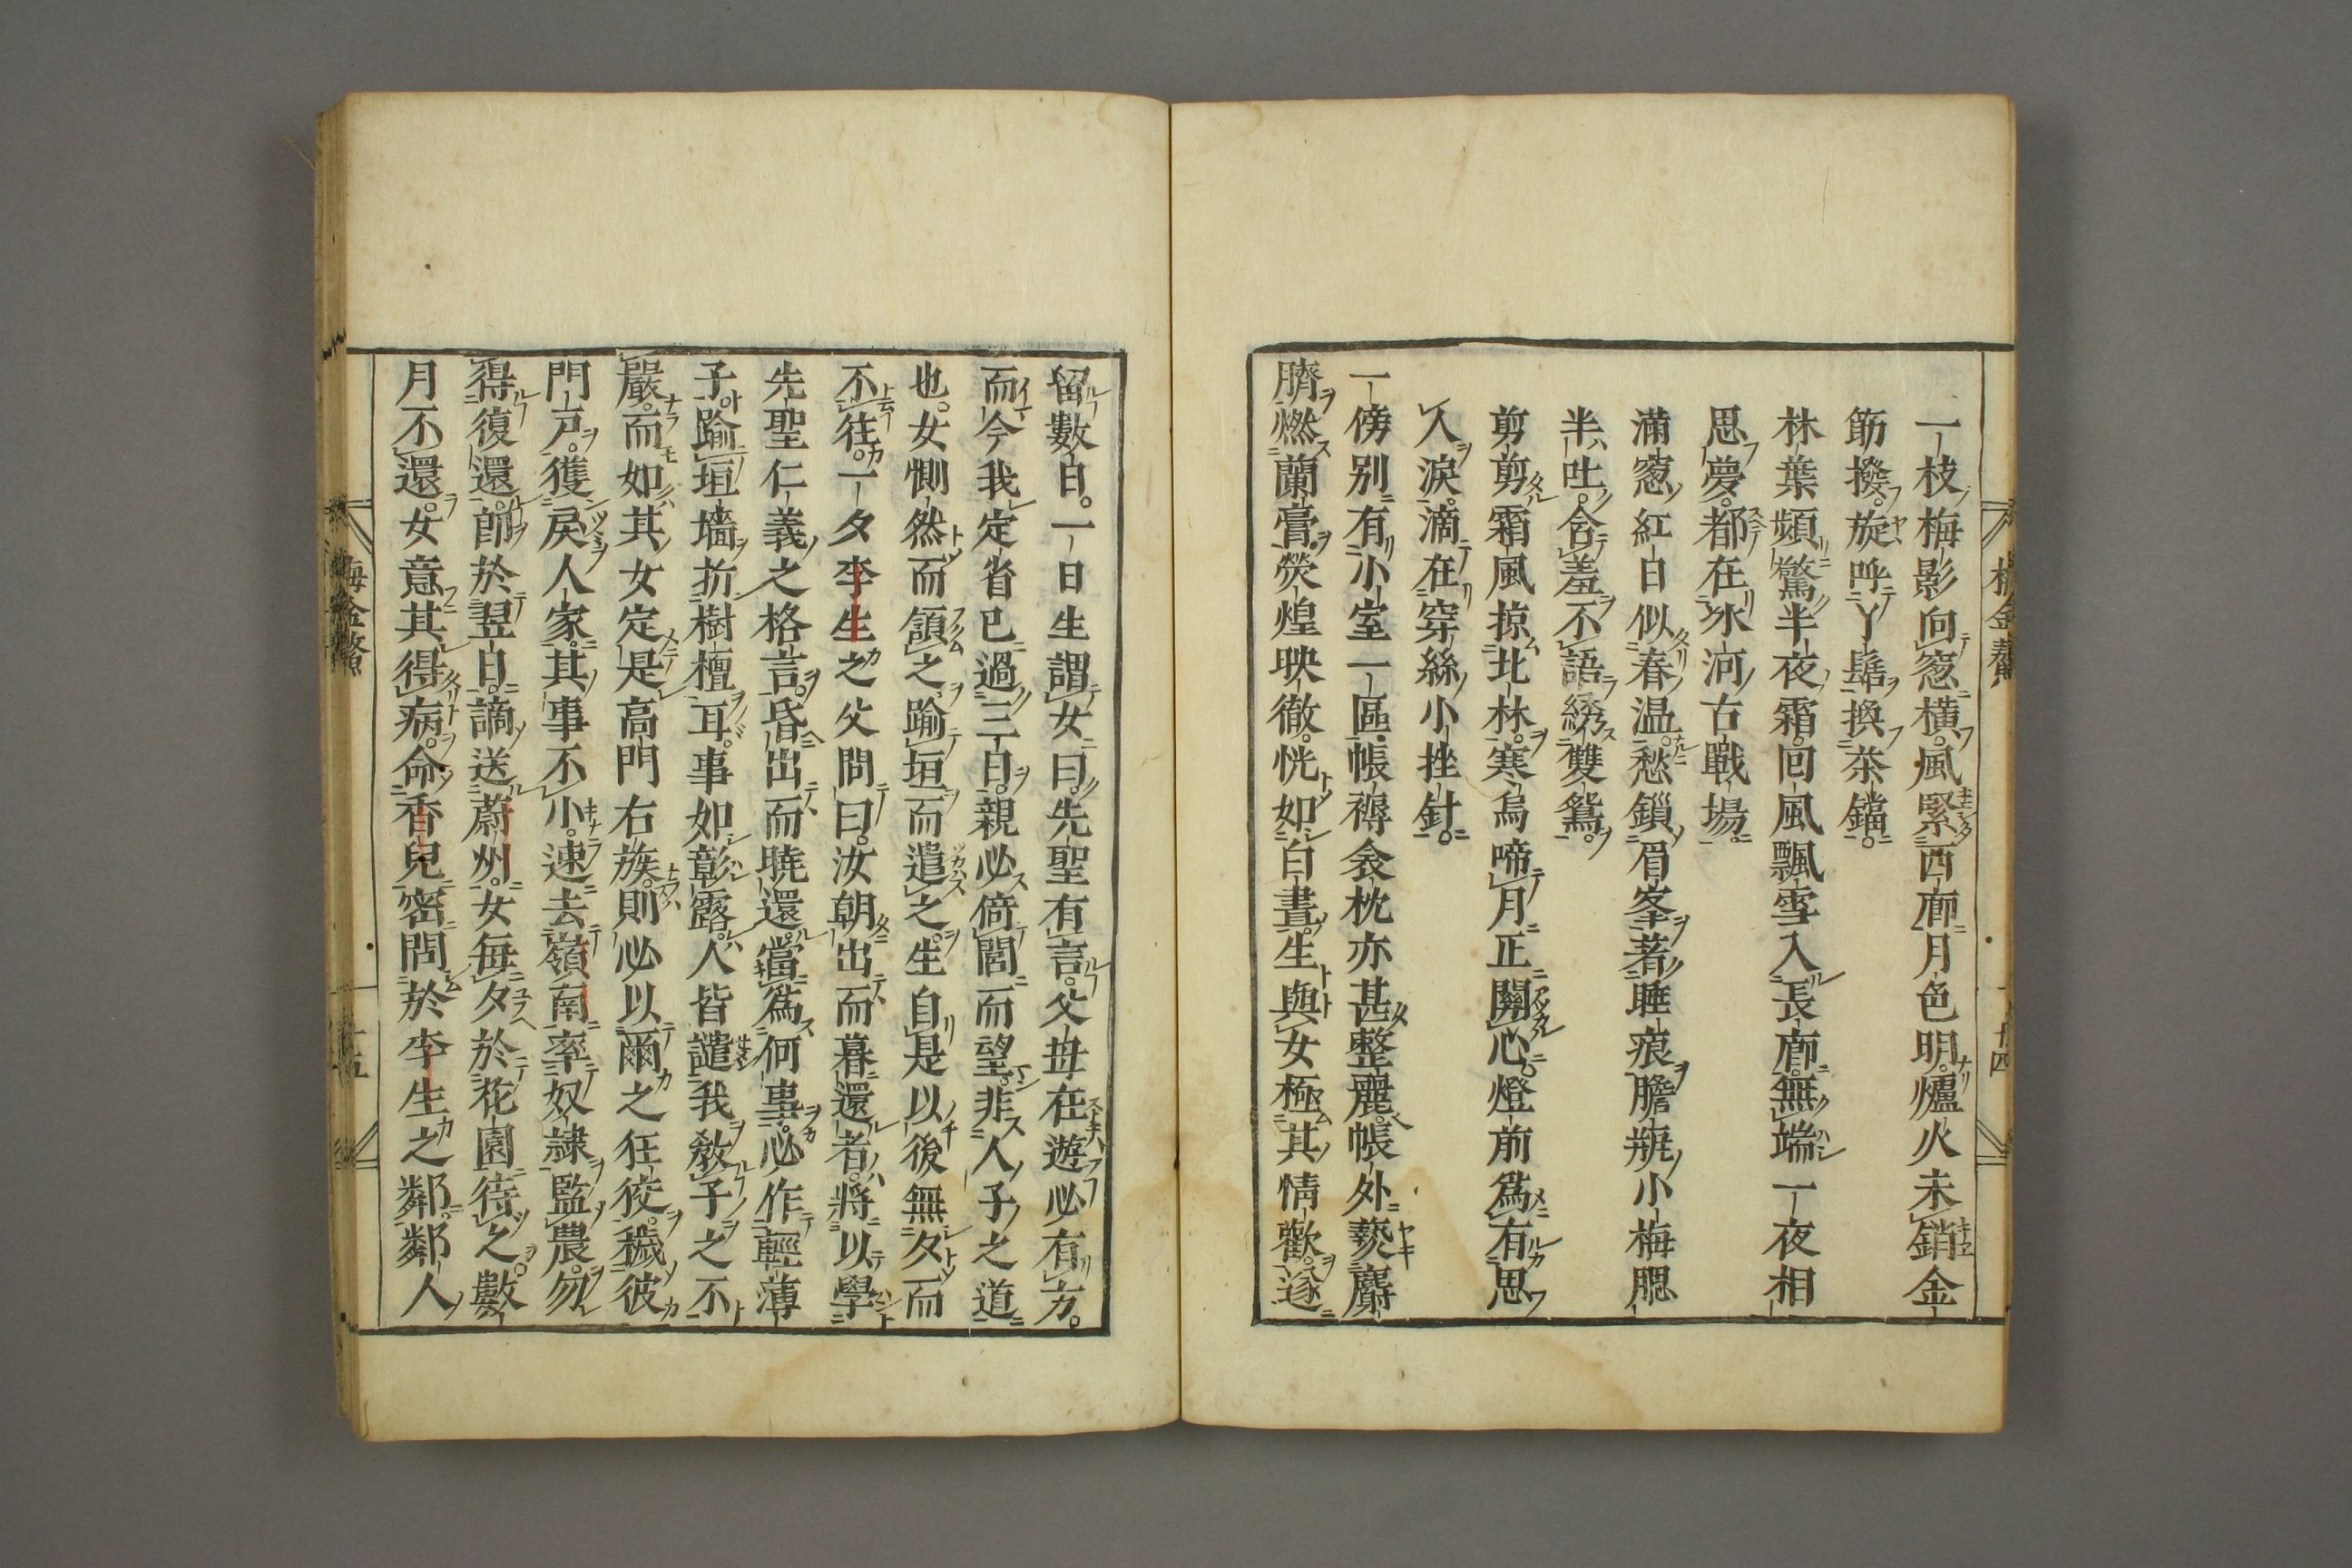 一枝梅影向窓橫。風緊西廊月色明。爐火未銷金
筋撥。旋呼丫鬟換茶鐺。
林葉頻驚半夜霜。囘風飄雪入長廊。無端一夜相
思夢。都在氷河古戰場。
滿窓紅日似春温。愁鎖眉峯著睡痕。膽甁小梅腮
半吐。含羞不語綉雙鴛。
剪剪霜風掠北林。寒烏啼月正關心。燈前爲有思
人淚。滴在穿絲小挫針。
一傍別有小室一區。帳褥衾枕亦甚整麗。帳外爇麝
臍。燃蘭膏。熒煌映徹。恍如白晝。生與女極其情歡。遂
留數日。一日生謂女曰。先聖有言。父母在遊必有方。
而今我定省已過三日。親必倚閭而望。非人子之道
也。女惻然而頷之。踰垣而遣之。生自是以後無夕而
不往。一夕李生之父問曰。汝朝出而暮還者。將以學
先聖仁義之格言。昏出而曉還。當爲何事。必作輕薄
子。踰垣墻折樹檀耳。事如彰露。人皆譴我敎子之不
嚴。而如其女定是高門右族。則必以爾之狂狡。穢彼
門戶。獲戾人家。其事不小。速去嶺南。率奴隷監農。勿
得復還。卽於翌日。謫送蔚州。女每夕於花園待之。數
月不還。女意其得病。命香兒密問於李生之鄰。鄰人
梅金鰲
十四
梅金鰲
十五